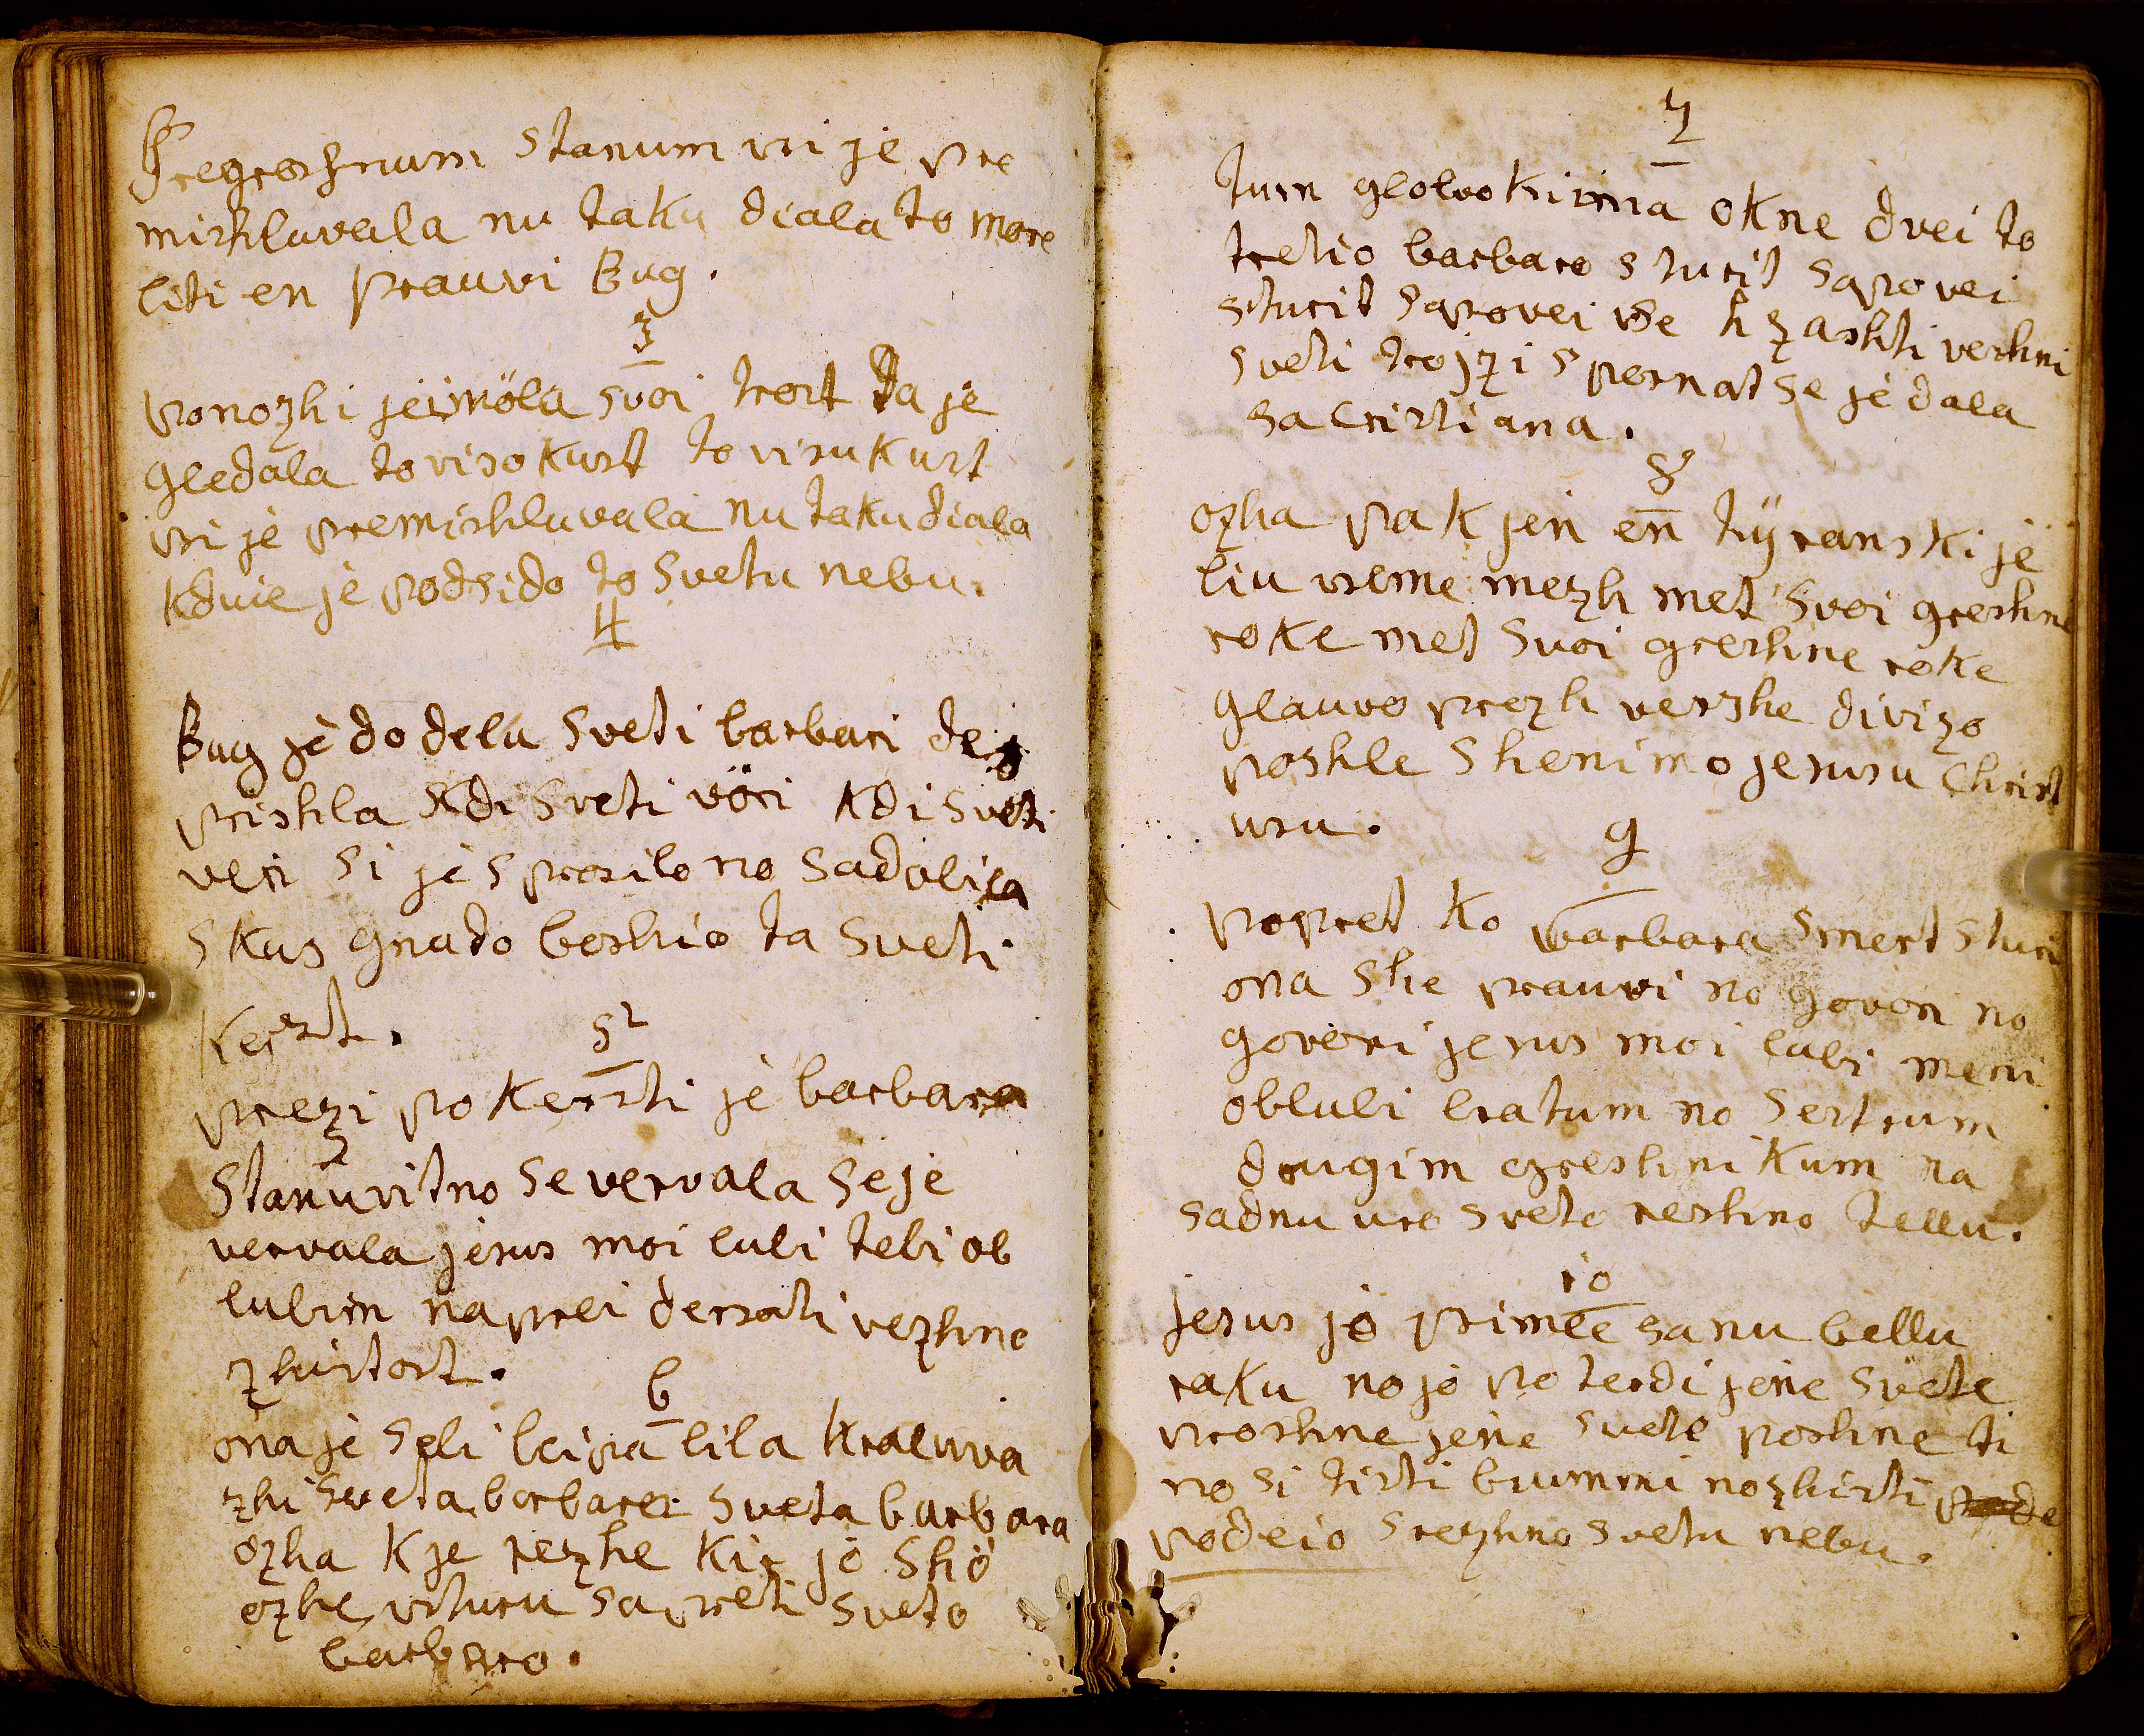 Pregreshnum stanum vsi je pre
mishluvala nu taku diala to more
liti en prauvi Bug.
3
ponozhi je imöla svoi trost Da je
gledala to visokust to visukust
vsi je premishluvala nu taku diala
kduie je podsido to svetu nebu.
4
Bug je do delu sveti barbari de
prishla Kdi sveti vöri Kdi sveti
veri si je sprosilo no sadobila
skus gnado boshio ta sveti
Kerst.
5
prezi po Kersti je barbara
stanuvitno se vervala se je
vervala jesus moi lubi tebi ob
lubim naprei dersati vezhno
zhistost.
6
ona je seli bei pa lila Kraluva
zhi sveta barbara sveta barbara
ozha K je rezhe Kir jo sho
ozhe vturu sapreti sveto
barbaro.
7
turn glolvokirna okne dvei to
tretio barbaro sturit sapovei
sturit sapovei vse h zashti vershni
sveti trojzi spernat se je dala
sa Cristiana.
8
ozha pak jen en tÿranski je
biu vseme mezh met svoi greshne
roke met svoi greshne roke
glauvo prezh verzhe divizo
poshle shenimo jesusu Christ
usu.
9
popret ko barbara smert sturi
ona she prauvi no govori no
govori jesus moi lubi meni
oblubi bratum no sestrum
drugim greshnikum na
sadnu uro sveto reshno tellu.
10
jesus jo primee sa nu bellu
raku no jo po terdi jene svete
proshne jene svete poshne ti
no si tisti brummi no zhisti
podeio srezhno svetu nebu.